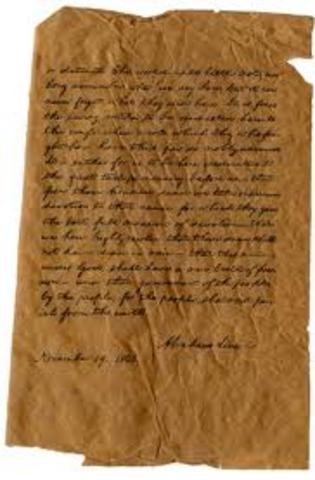 or detract. The world will little note, nor
long remember what we say here but it can
never forget what they did here. It is for us
the living, rather to be dedicated here to
the unfinished work which they who fou
ght here have thus far so nobly advanced
It is rather for us to be here dedicated to
the great task remaining before us - that
from these honored dead we take increased
devotion to that cause for which they gave
the last full measure of devotion - that
we here highly resolve that these dead shall
not have died in vain - that this na
under God, shall have a new birth of free
dom - and that government of the people
by the people, for the people, shall not per
ish from the earth.
Abraham Linc
November 19, 1863.